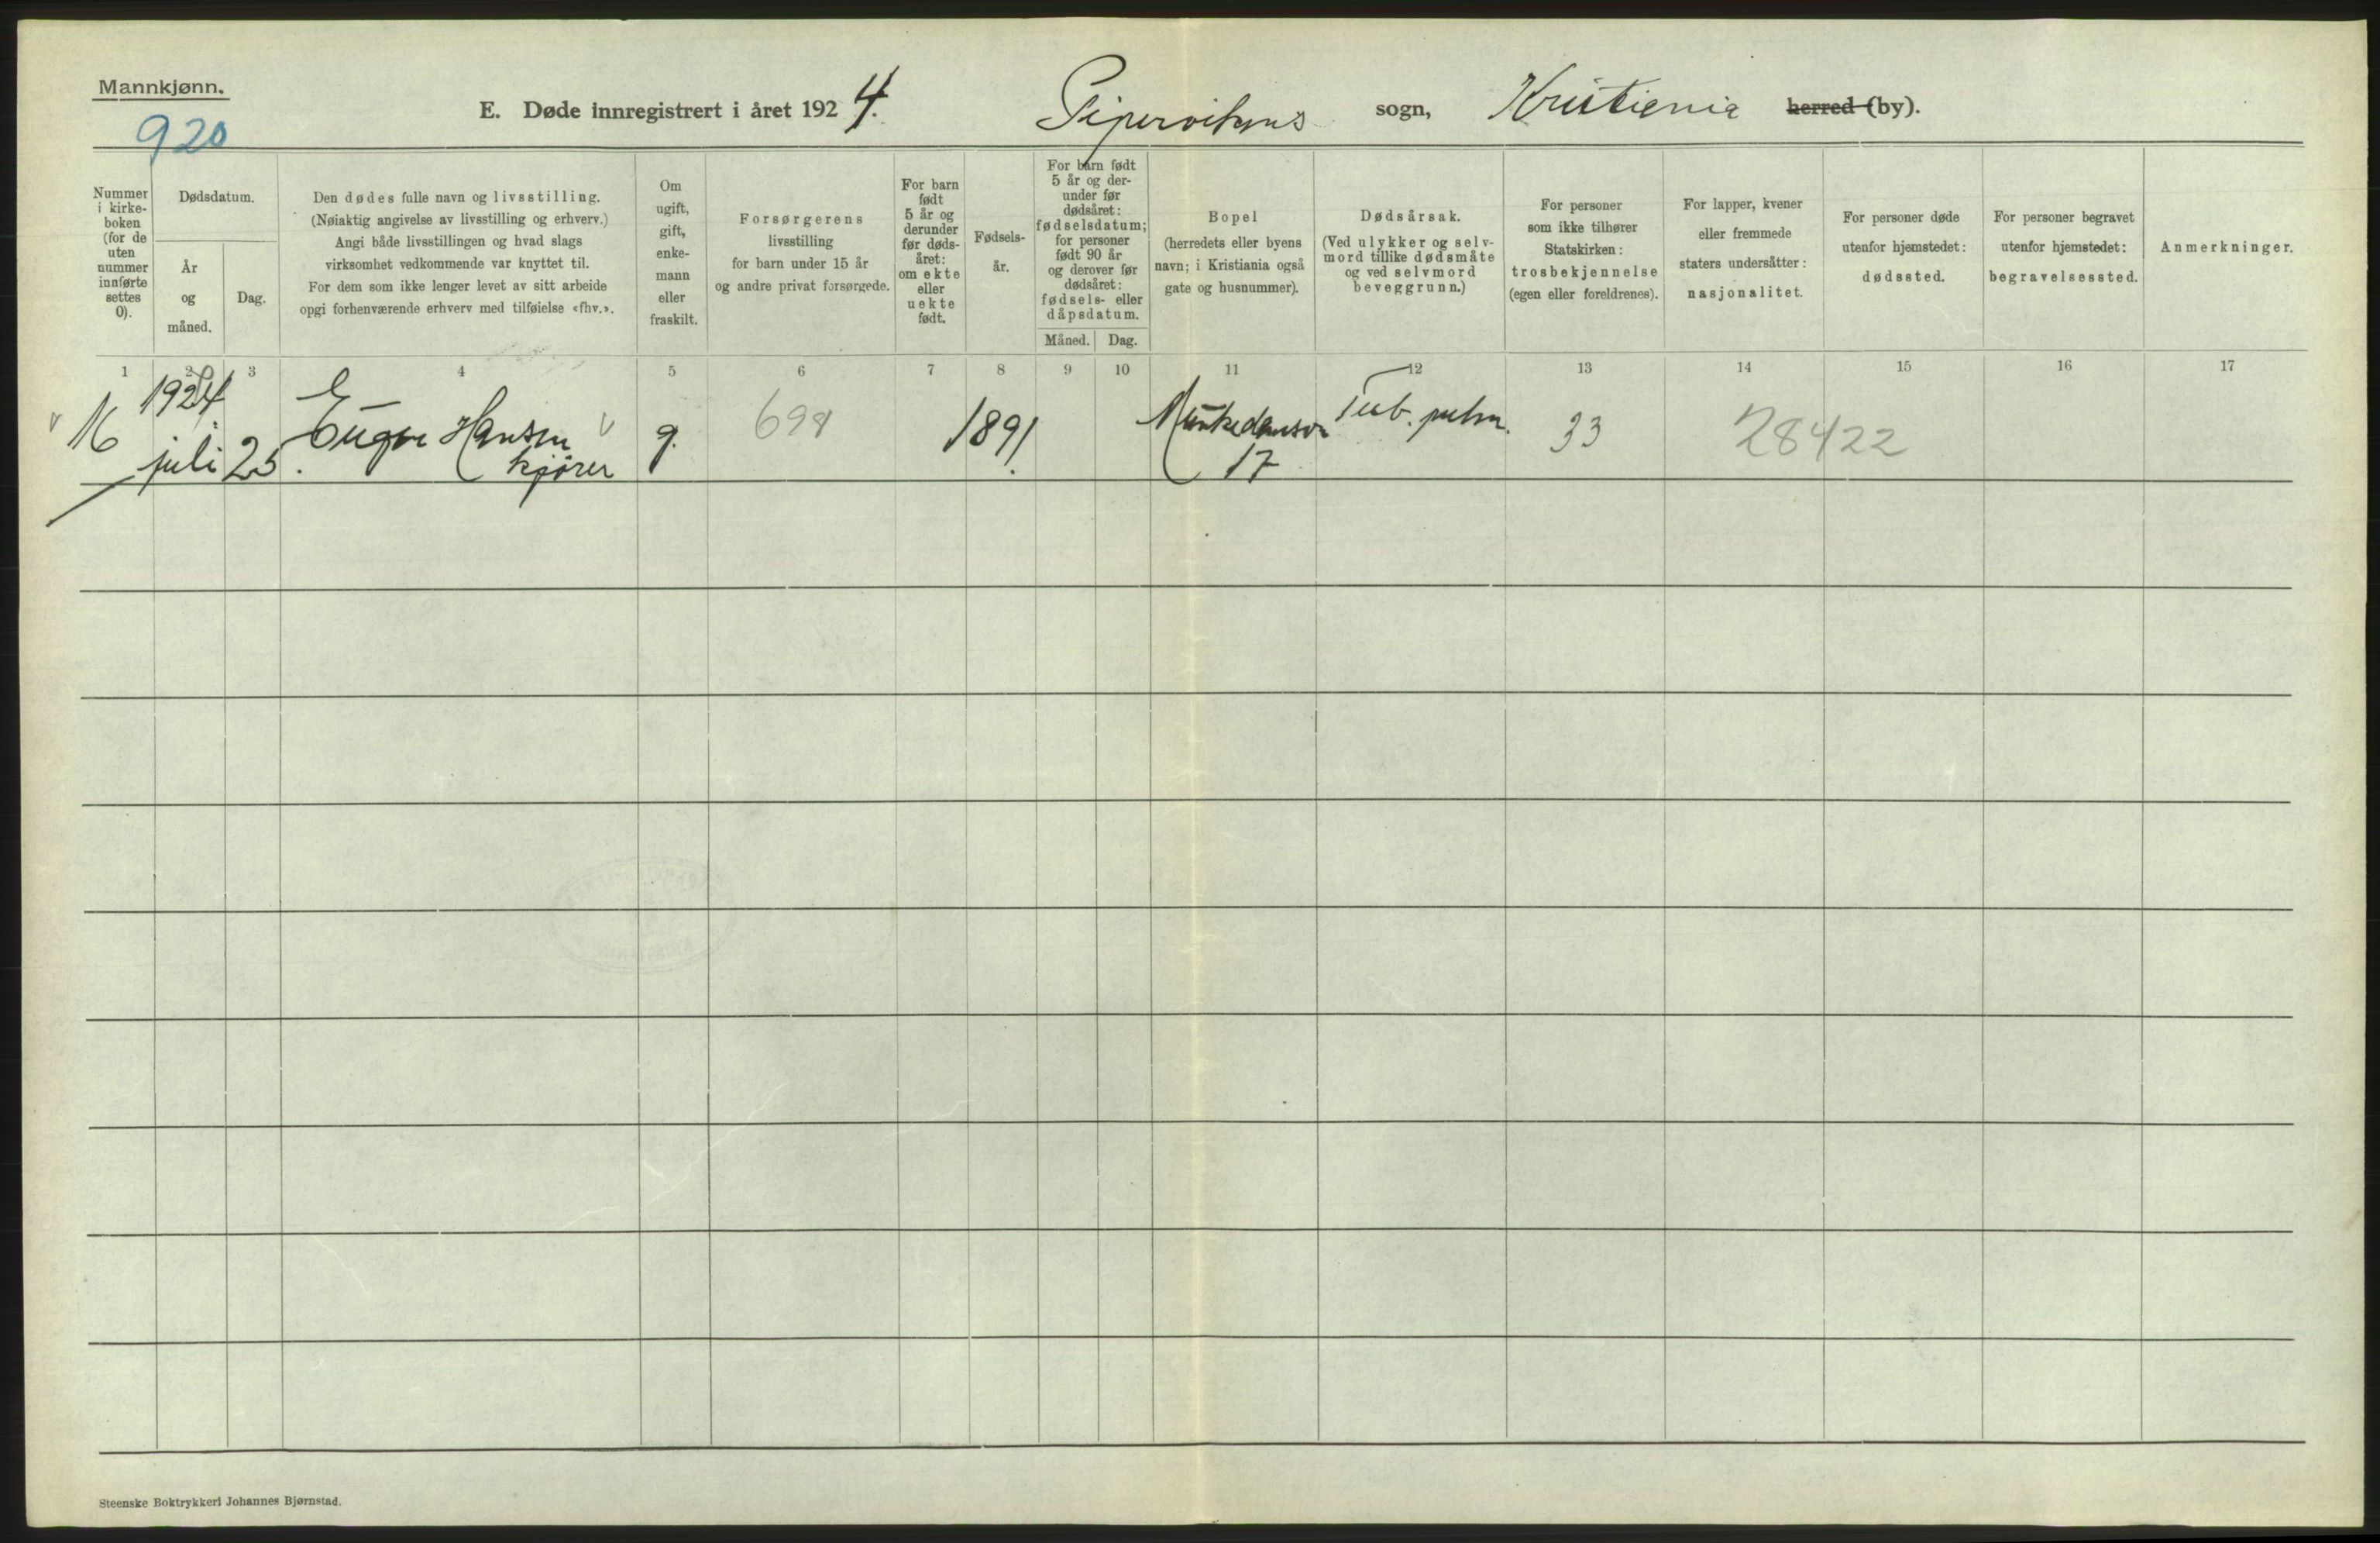 Mannkjønn.
920
E. Døde innregistrert i året 1924. Pipervikens sogn, Kristiania herred (by).
Nummer i kirke-boken (for de uten nummer innførte settes 0).
Dødsdatum.
År og måned.
Dag.
Den dødes fulle navn og livsstilling.
(Nøiaktig angivelse av livsstilling og erhverv.)
Angi både livsstillingen og hvad slags
virksomhet vedkommende var knyttet til.
For dem som ikke lenger levet av sitt arbeide
opgi forhenværende erhverv med tilføielse «fhv.».
Om ugift, gift, enke-mann eller fraskilt.
Forsørgerens
livsstilling
for barn under 15 år
og andre privat forsørgede.
For barn født 5 år og derunder før døds-året: om ekte eller uekte født.
Fødsels-år.
For barn født 5 år og der-under før dødsåret: fødselsdatum; for personer født 90 år og derover før dødsåret: fødsels- eller dåpsdatum.
Måned. Dag.
Bopel
(herredets eller byens
navn; i Kristiania også
gate og husnummer).
Dødsårsak.
(Ved ulykker og selv-
mord tillike dødsmåte
og ved selvmord
beveggrunn.)
For personer
som ikke tilhører
Statskirken:
trosbekjennelse
(egen eller foreldrenes).
For lapper, kvener
eller fremmede
staters undersåtter:
nasjonalitet.
For personer døde
utenfor hjemstedet:
dødssted.
For personer begravet
utenfor hjemstedet:
begravelsessted.
Anmerkninger.
1 2 3 4 5 6 7 8 9 10 11 12 13 14 15 16 17
16 1924 Hansen g. 698 1891 Tub. pulm. 33 28422
juli 25. kjører 17
Steenske Boktrykkeri Johannes Bjørnstad.